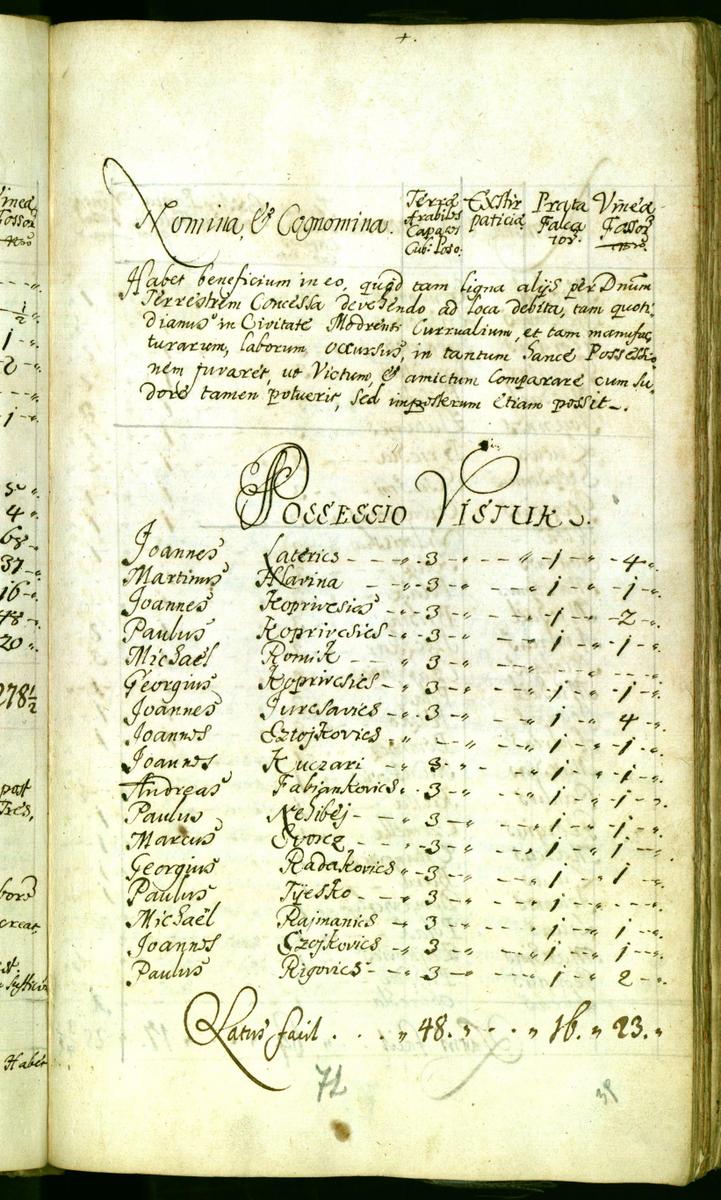 Nomina, & Cognomina. Terræ Arabiles Capaces Cub: Poso: Exstirpaticiæ Prata Falcator. Vineæ Fossor.
Habet beneficium in eo, quod tam ligna alijs per Dnum
Terrestrem Concessa devehendo ad loca debita, tam quoti
dianus in Civitate Modrensi Currualium, et tam manufac
turarum, laborum occursus, in tantum hance Possessio
nem juvaret, ut Victum, & amictum Comparare cum Su
dore tamen potuerit, sed imposterum etiam possit.
Possessio Vistuk.
Joannes Laterics 3 1 4
Martinus Hlavina 3 1 1
Joannes Koprivesics 3 1 2
Paulus Koprivcsics 3 1 1
Michaël Romik 3
Georgius Koprivcsics 3 1 1
Joannes Juresavics 3 1 4
Joannes Sztojkovics 1 1
Joannes Kuczari 3 1 1
Andreas Fabjankovics 3 1 1
Paulus Nehibej 3 1 1
Marcus Svorcz 3 1 1
Georgius Radakovics 3 1 1
Paulus Tjesko 3 1
Michaël Rajmanics 3 1 1
Joannes Czojkovics 3 1 1
Paulus Rigovics 3 1 2
Latus facit 48. 16. 23.
72